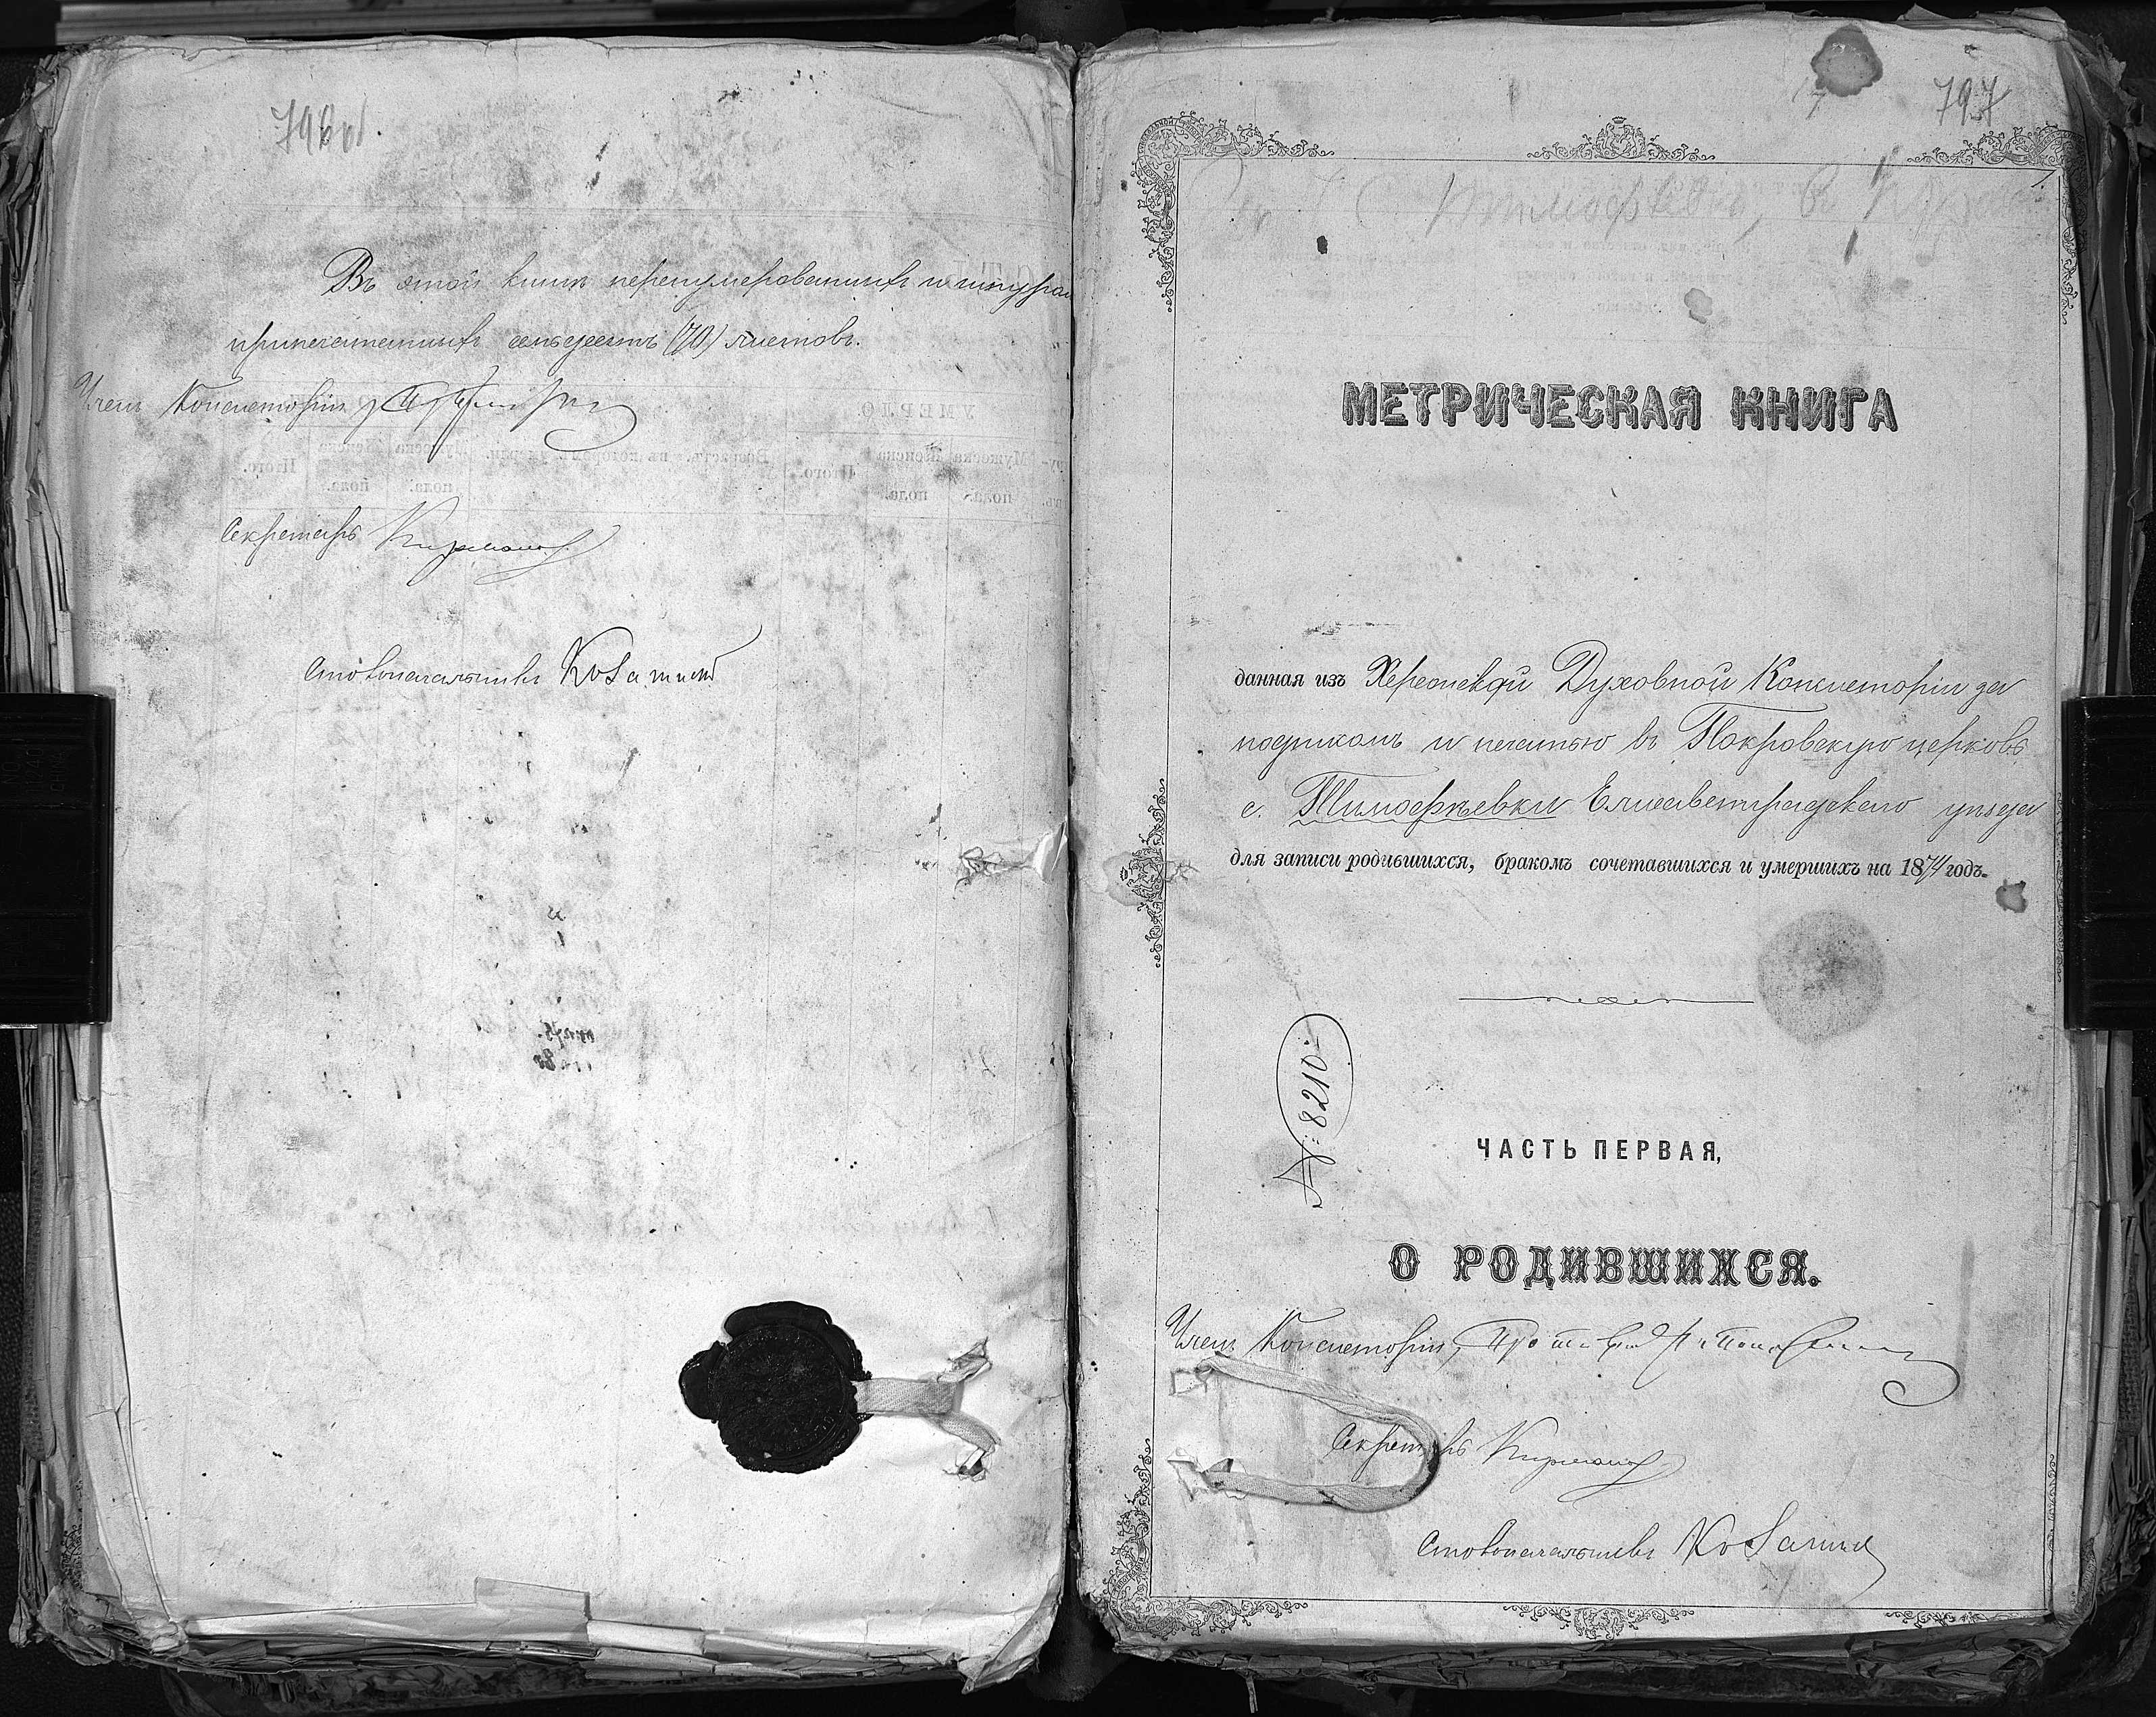 796 об.
Въ этой книгѣ перенумерованныхъ и шнуро
припечатанныхъ семьдесятъ (70) листовъ.
Членъ Консисторіи
Секретарь
Столоначальникъ
797
С. Тимофѣевка,
МЕТРИЧЕСКАЯ КНИГА
данная изъ Херсонской Духовной Консисторіи за
подписомъ и печатью въ Покровскую церковь
с. Тимофѣевки Елисаветградскаго уѣзда
для записи родившихся, бракомъ сочетавшихся и умершихъ на 1874 годъ.
№ 8210
ЧАСТЬ ПЕРВАЯ,
О РОДИВШИХСЯ.
Членъ Консисторіи,
Секретарь
Столоначальникъ